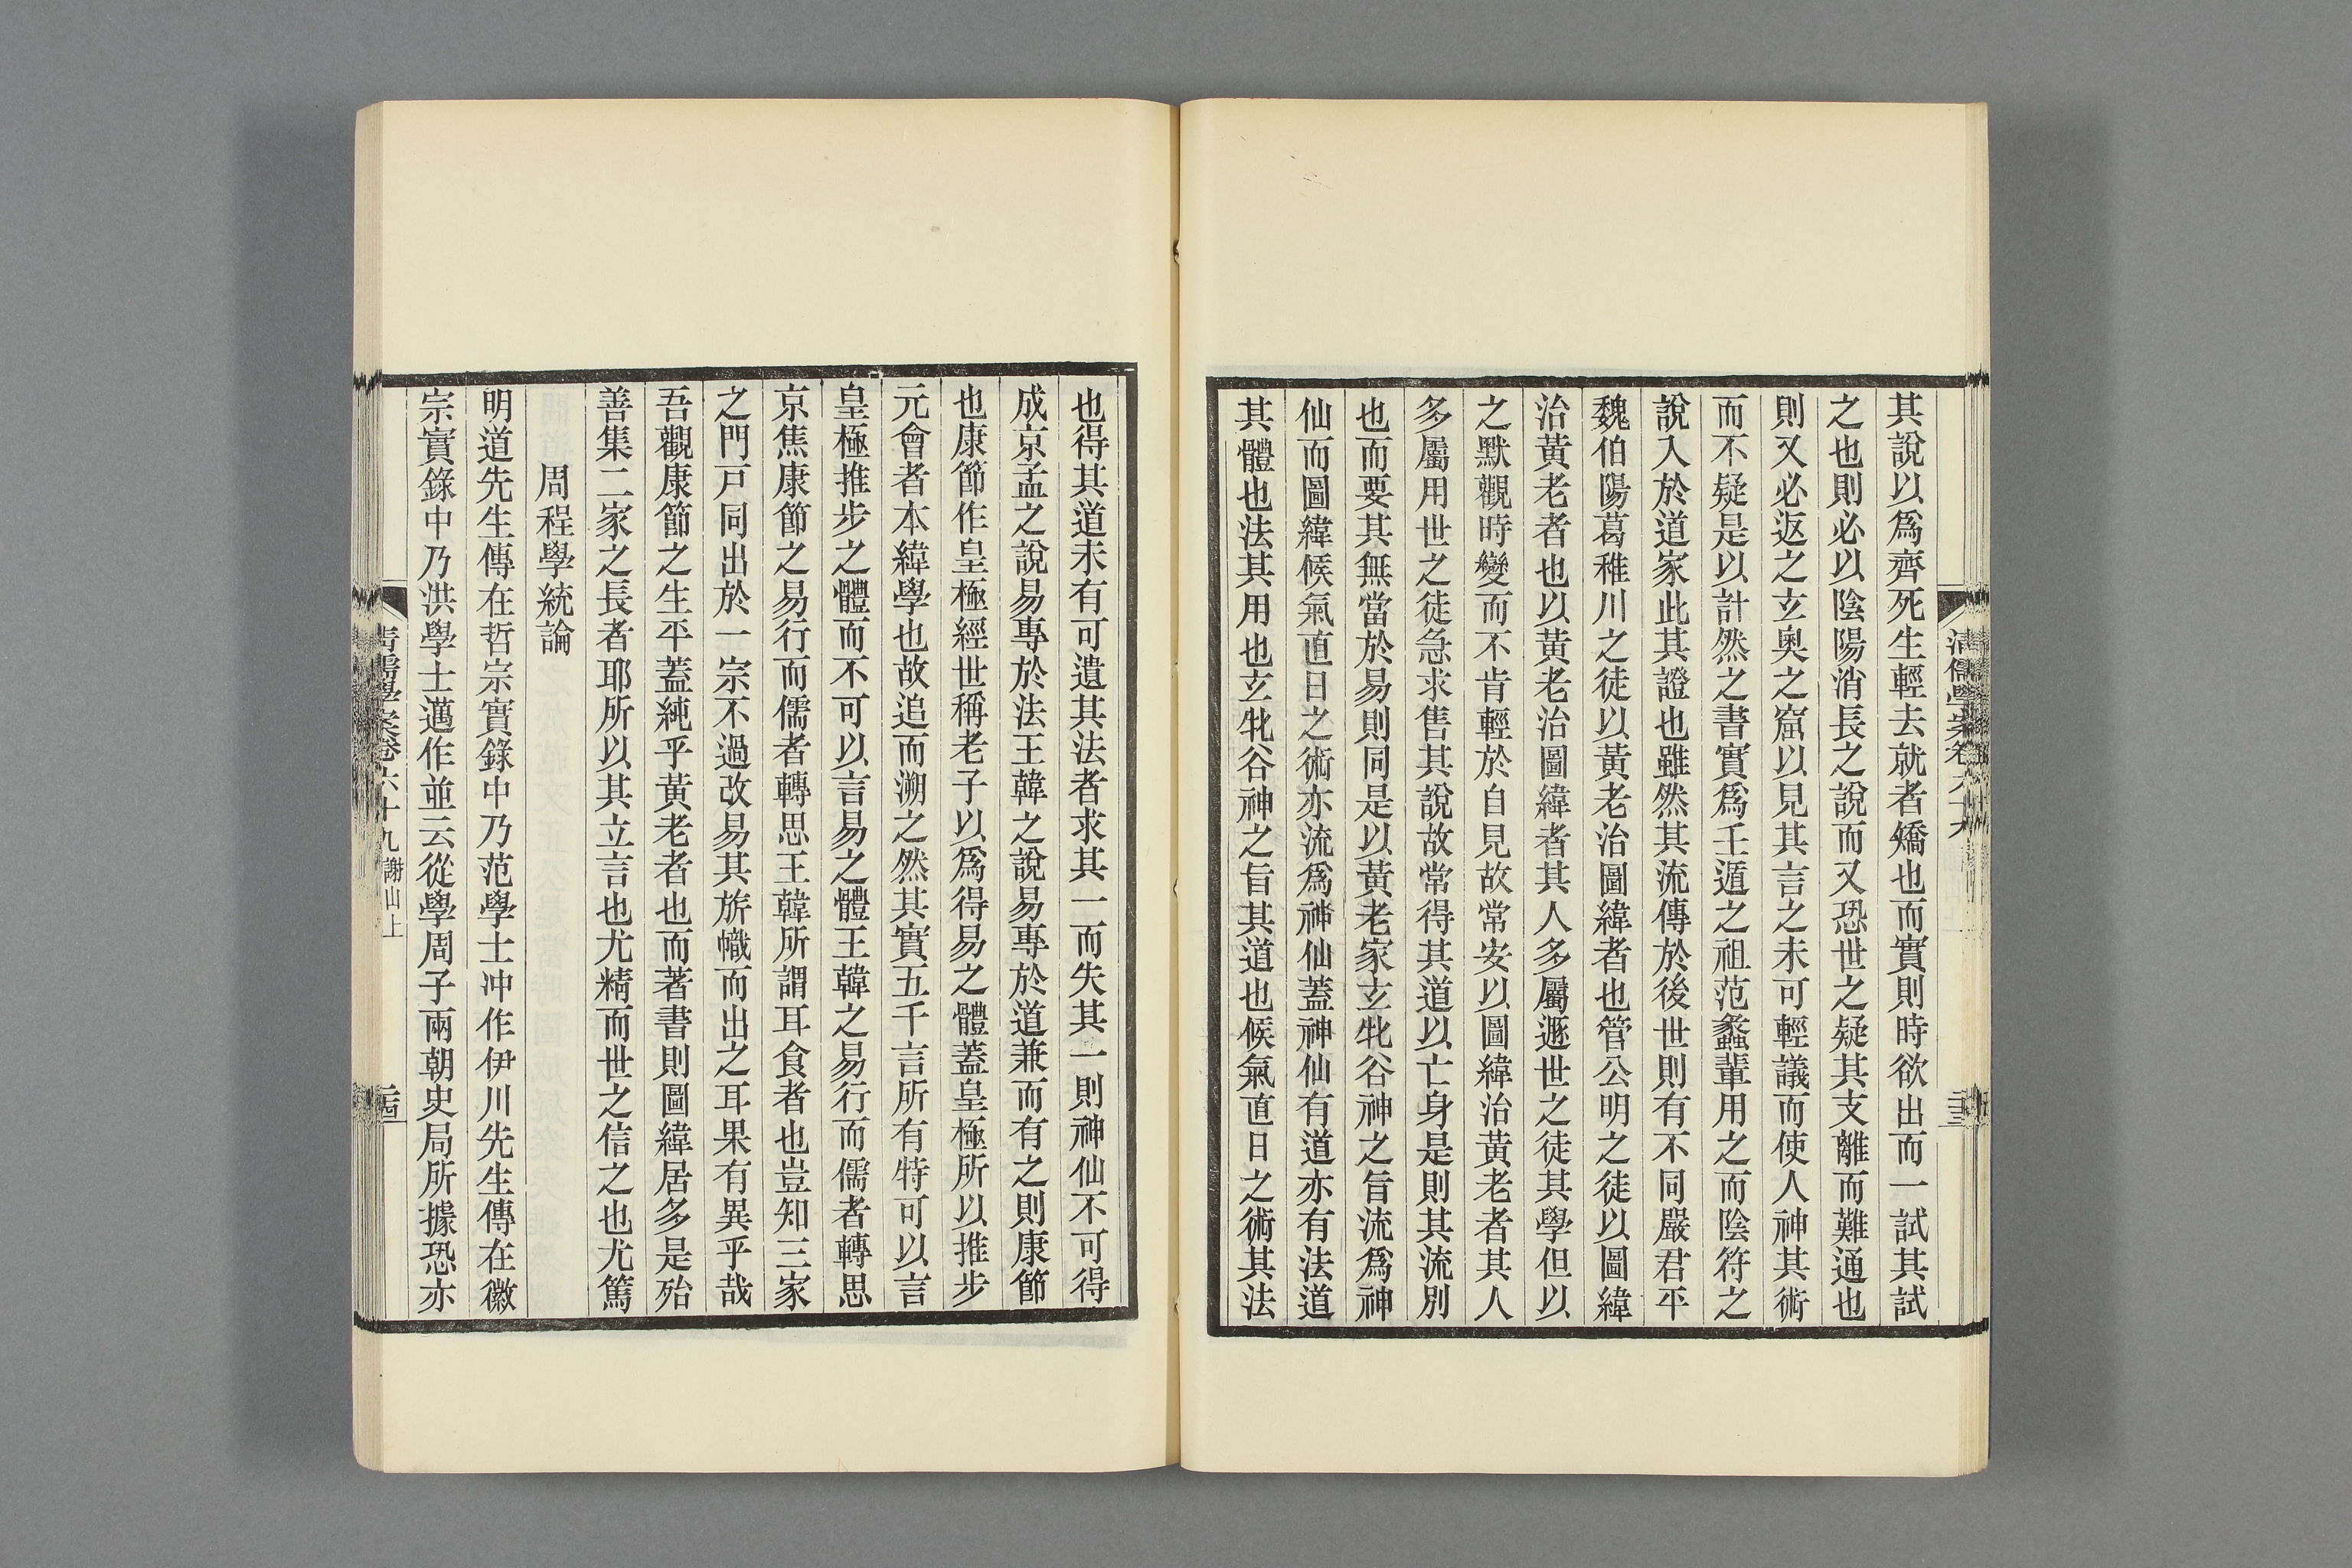 其說以爲齊死生輕去就者矯也而實則時欲出而一試其試
之也則必以陰陽消長之說而又恐世之疑其支離而難通也
則又必返之玄奧之窟以見其言之未可輕議而使人神其術
而不疑是以計然之書實爲壬遁之祖范蠡輩用之而陰符之
說入於道家此其證也雖然其流傳於後世則有不同嚴君平
魏伯陽葛稚川之徒以黃老治圖緯者也管公明之徒以圖緯
治黃老者也以黃老治圖緯者其人多屬遯世之徒其學但以
之默觀時變而不肯輕於自見故常安以圖緯治黃老者其人
多屬用世之徒急求售其說故常得其道以亡身是則其流別
也而要其無當於易則同是以黃老家玄牝谷神之旨流爲神
仙而圖緯候氣直日之術亦流爲神仙蓋神仙有道亦有法道
其體也法其用也玄牝谷神之旨其道也候氣直日之術其法
也得其道未有可遺其法者求其一而失其一則神仙不可得
成京孟之說易專於法王韓之說易專於道兼而有之則康節
也康節作皇極經世稱老子以爲得易之體蓋皇極所以推步
元會者本緯學也故追而溯之然其實五千言所有特可以言
皇極推步之體而不可以言易之體王韓之易行而儒者轉思
京焦康節之易行而儒者轉思王韓所謂耳食者也豈知三家
之門戸同出於一宗不過改易其旂幟而出之耳果有異乎哉
吾觀康節之生平蓋純乎黃老者也而著書則圖緯居多是殆
善集二家之長者耶所以其立言也尤精而世之信之也尤篤
周程學統論
明道先生傳在哲宗實錄中乃范學士冲作伊川先生傳在徽
宗實錄中乃洪學士邁作並云從學周子兩朝史局所據恐亦
清儒學案卷六十九 謝山上